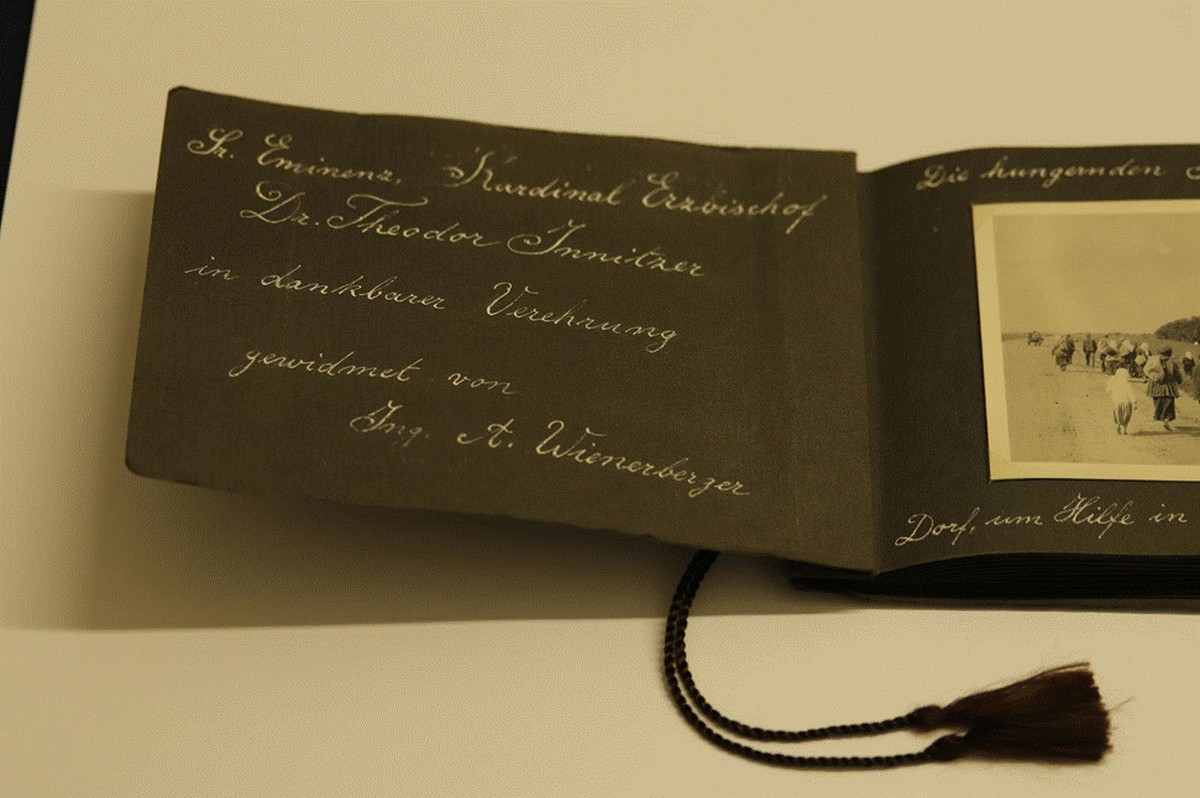 Sr. Eminenz, Kardinal Erzbischof
Dr. Theodor Innitzer
in dankbarer Verehrung
gewidmet von
Ing. A. Wienerberger
Die hungernden
Dorf, um Hilfe in